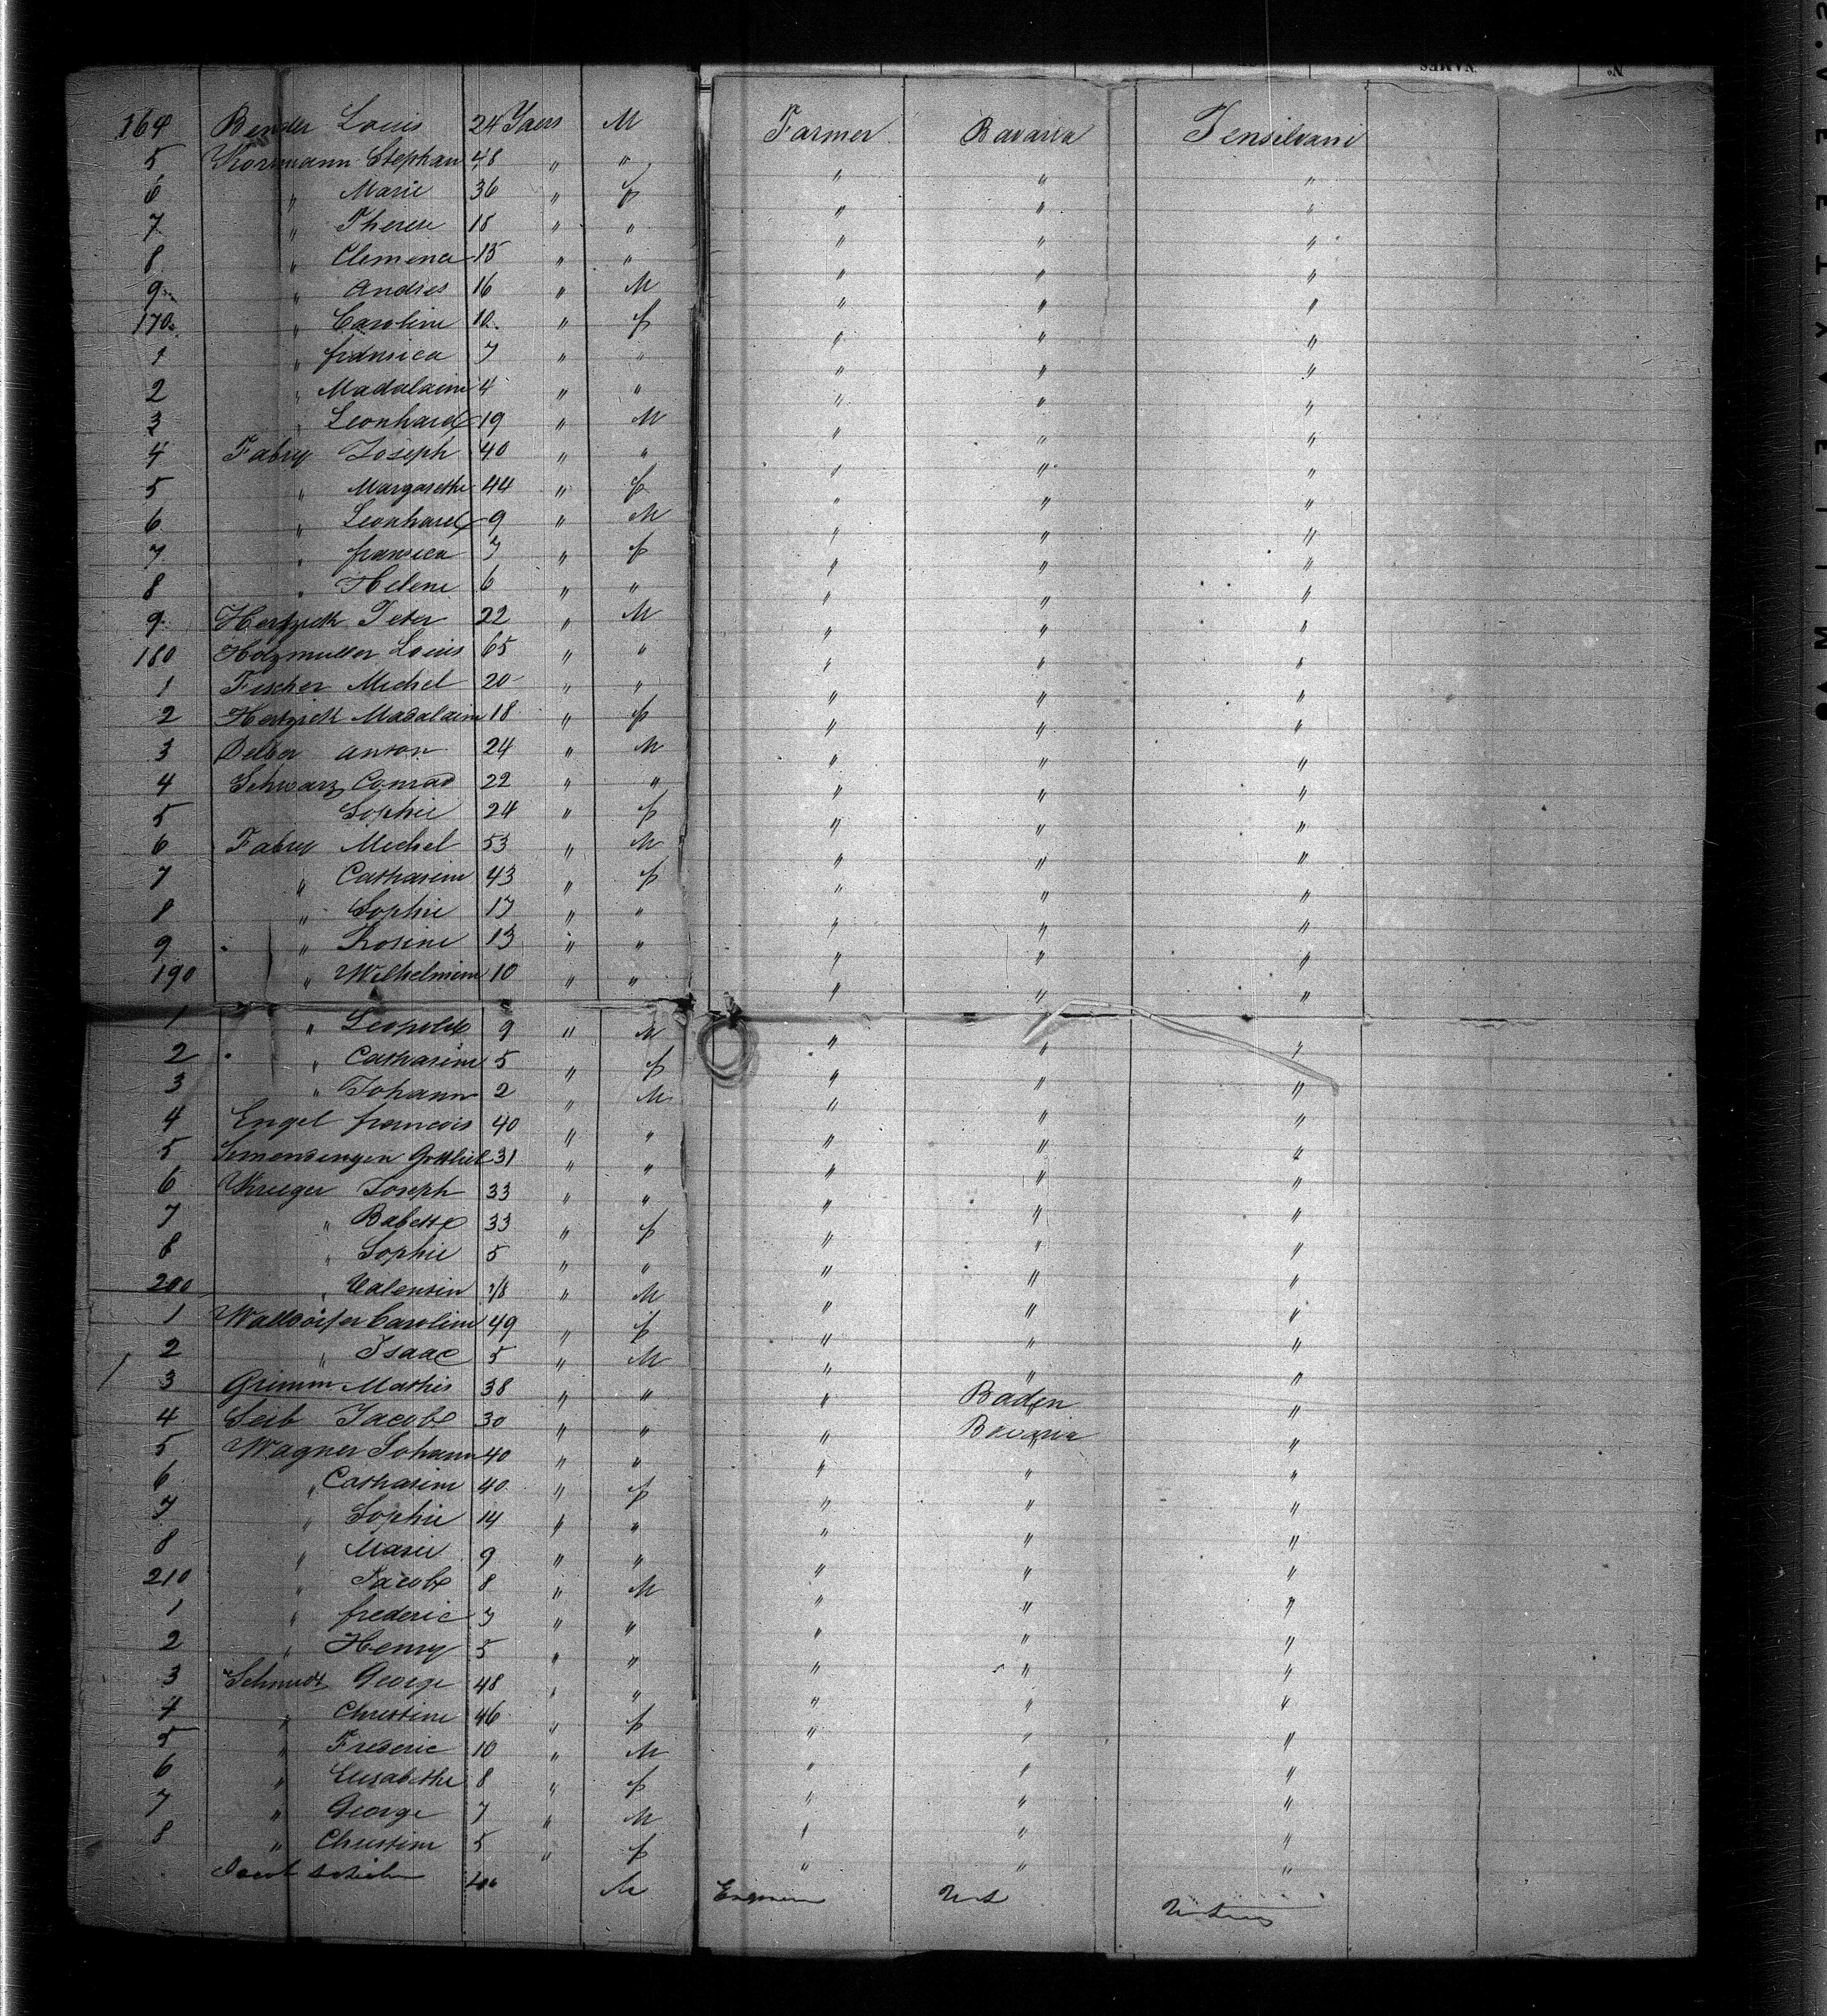 NAMES. No
164 Bender Louis 24 Years M Farmer Bavaria Pensilvani
5 Kormann Stephan 48 " " " " "
6 " Marie 36 " f " " "
7 " Therese 18 " " " " "
8 " Clemence 15 " " " " "
9 " Andres 16 " M " " "
170 " Caroline 10 " f " " "
1 " fransica 7 " " " " "
2 " Madalaine 4 " " " " "
3 " Leonhard 19 " M " " "
4 Fabry Joseph 40 " " " " "
5 " Margarethe 44 " f " " "
6 " Leonhard 9 " M " " "
7 " fransica 7 " f " " "
8 " Helene 6 " " " " "
9 Hertzick Peter 22 " M " " "
180 Holzmuller Louis 65 " " " " "
1 Fischer Michel 20 " " " " "
2 Hertzick Madalaine 18 " f " " "
3 anton 24 " M " " "
4 Schwarz Conrad 22 " " " " "
5 Sophie 24 " f " " "
6 Fabry Michel 53 " M " " "
7 " Catharine 43 " f " " "
8 " Sophie 17 " " " " "
9 " Rosine 13 " " " " "
190 " Wilhelmine 10 " " " " "
1 " Leopold 9 " M " " "
2 " Catharine 5 " f " " "
3 " Johann 2 " M " " "
4 Engel francois 40 " " " " "
5 Gottlieb 31 " " " " "
6 Krieger Joseph 33 " " " " "
7 " Babette 33 " f " " "
8 " Sophie 5 " " " " "
200 " Valentin " M " " "
1 Walldorfer Caroline 49 " f " " "
2 " Isaac 5 " M " " "
3 Grimm Mathis 38 " " " Baden "
4 Seib Jacob 30 " " " Bavaria "
5 Wagner Johann 40 " " " " "
6 " Catharine 40 " f " " "
7 " Sophie 14 " " " " "
8 " Marie 9 " " " " "
210 " Jacob 8 " M " " "
1 " frederic 7 " " " " "
2 " Henry 5 " " " " "
3 Schmidt George 48 " " " " "
4 " Christine 46 " f " " "
5 " Frederic 10 " M " " "
6 " Elisabethe 8 " f " " "
7 " George 7 " M " " "
8 " Christine 5 " f " " "
Jacob M